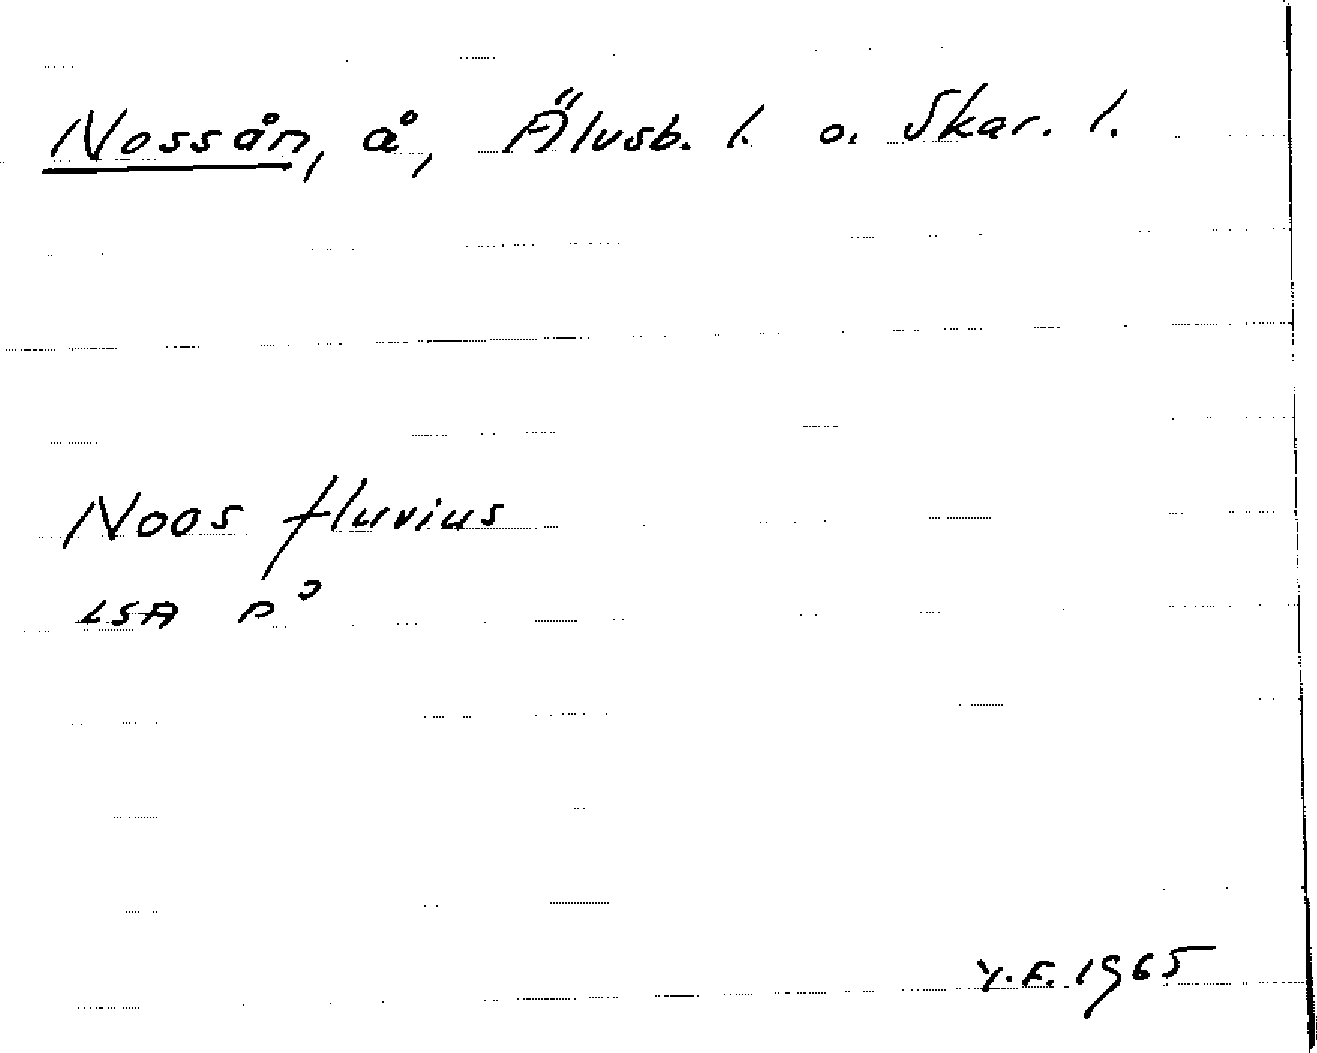 Nossån, å, Älvsb. l. o. Skar. l.
Noos fluvius
LSA P³
Y.F. 1965